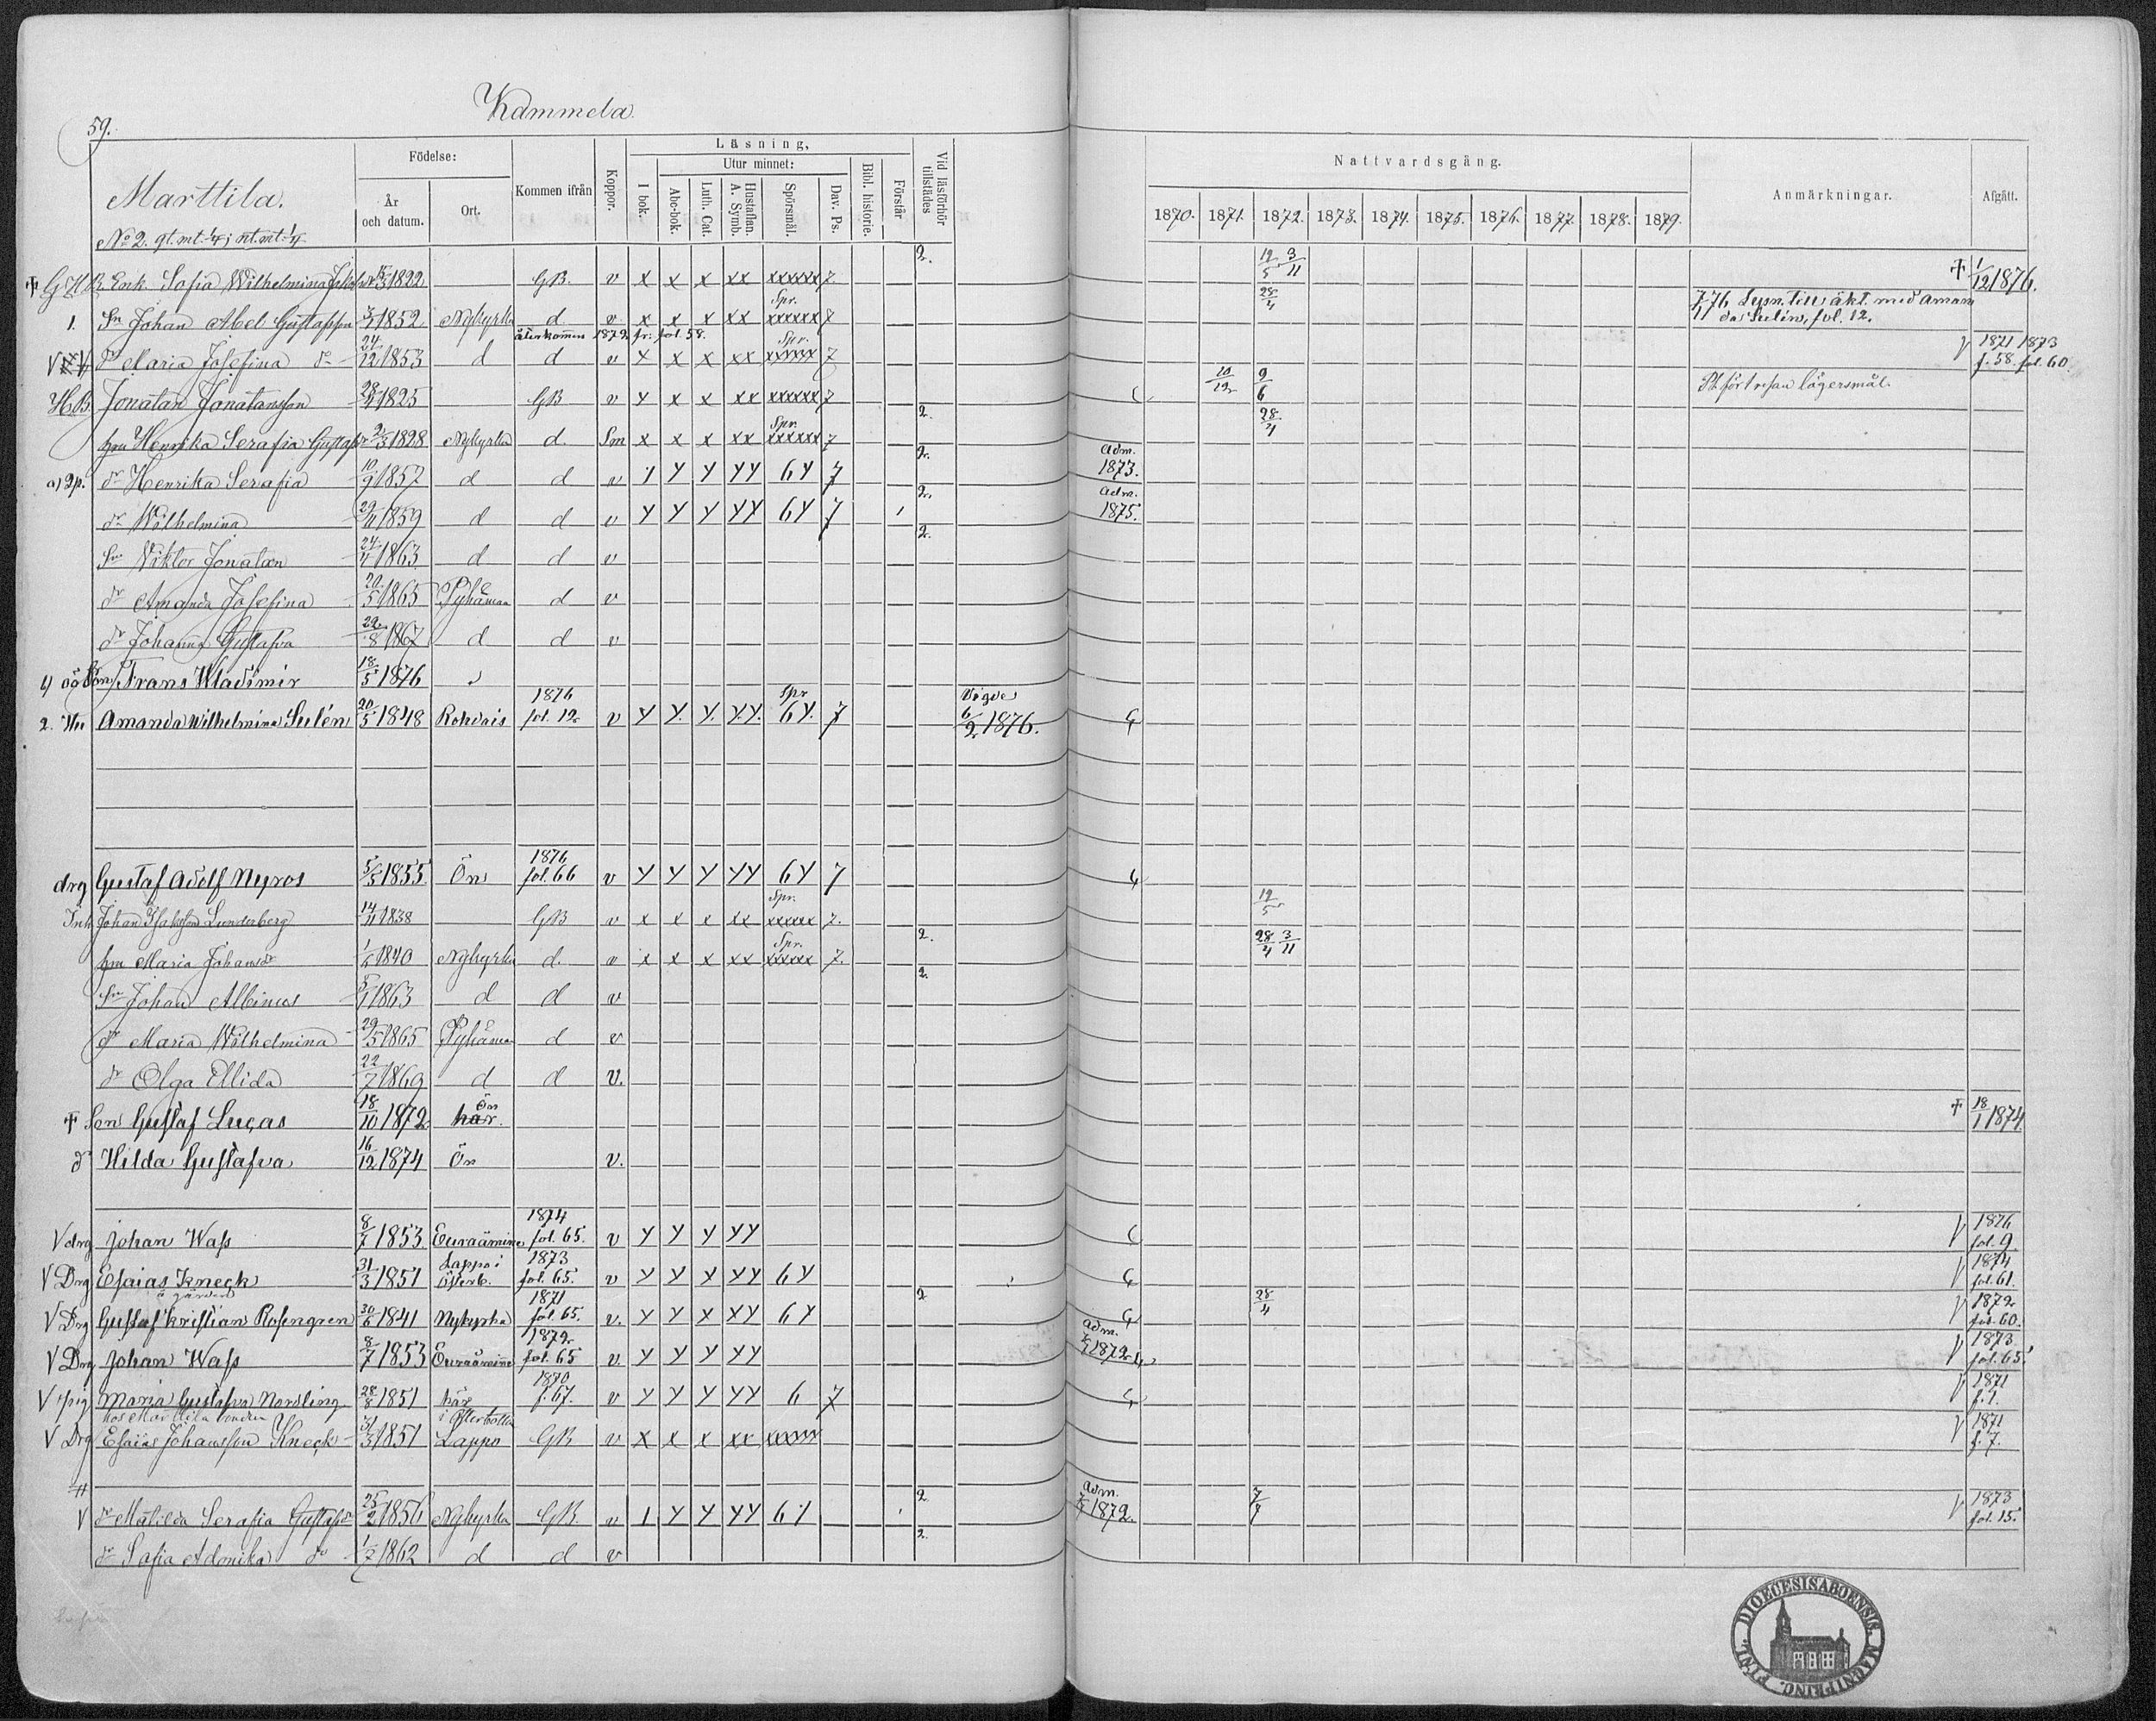 Kammela
59.
Marttila.
No 2. gt. mt. 1/4; nt. mt. 1/4
Födelse:
År och datum.
Ort.
Kommen ifrån
Koppor.
Läsning,
I bok.
Utur minnet:
Abc-bok.
Luth. Cat.
Hustaflan. A. Symb.
Spörsmål.
Dav. Ps.
Bibl. historie.
Förstår
Vid läsförhör tillstädes
Nattvardsgång.
1870. 1871. 1872. 1873. 1874. 1875. 1876. 1877. 1878. 1879.
Anmärkningar.
Afgått.
Enk. Sofia Wilhelmina 1822 GB. v x x x xx xxxxxx 7 2. 12/5 3/11 † 1/12 1876.
1. Sn Johan Abel Gustafsson 1852 Nykyrka d v x x x xx Spr. xxxxxx 7 28/4 Lysn. till äkt. med Amanda Sulén, fol. 12.
V dr Maria Josefina dr 24/12 1853 d återkommen 1872 fr. fol. 58. v x x x xx Spr. xxxxxx 7 V 1871 1873 f. 58. fol. 60.
HB. Jonatan Jonatansson 28/ 1825 GB v x x x xx xxxxxx 7 10/12 9/6 lägersmål.
hu Henrika Serafia 2/3 1828 Nykyrka d. Sm x x x xx Spr. xxxxxx 7 2. 28/4
dr Henrika Serafia 10/9 1857 d d v 1 Y Y YY 6Y 7 2. Adm. 1873.
dr Wilhelmina 29/11 1859 d d v Y Y Y YY 6Y 7 2. Adm. 1875.
Sn Viktor Jonatan 24/4 1863 d d v 2.
dr Amanda Josefina 20/5 1865 Pyhämaa d v
dr Johanna Gustafva 22/8 1867 d d v
Frans Wladimir 18/5 1876
2. Hu Amanda Wilhelmina Sulén 20/5 1848 Rohdais 1876 fol. 12 v Y Y. Y. Y.Y. Spr 6Y. 7 Vigde 6/2 1876.
drg Gustaf Adolf Nyros 5/5 1855. Ön 1876 fol. 66 v Y Y Y YY 6Y 7
Inh Johan Lunderberg 14/11 1838 GB v x x x xx Spr. xxxxxx 7. 12/5
hu Maria Johansdr 1/6 1840 Nykyrka d. v x x x xx Spr. xxxxxx 7. 2. 28/4 3/11
Sn Johan Albinus 1863 d d v 2.
dr Maria Wilhelmina 29/5 1865 Pyhämaa d v
dr Olga Ellida 22/7 1869 d d v.
† Son Gustaf Lucas 18/10 1872 här. Ön † 18/1 1874
dr Hilda Gustafva 16/12 1874 Ön v.
V drg Johan Wass 8/7 1853 Euraåminne 1874 fol. 65. v Y Y Y YY V 1876 fol. 9.
V Drg Esaias Kneck 31/3 1851 Lappo i Österb. 1873 fol. 65. v Y Y x YY 6Y V 1874 fol. 61.
V Drg Gustaf Kristian Rosengren 30/6 1841 Nykyrka 1871 fol. 65. v. Y Y x XY 6Y 2 28/4 V 1872 fol. 60.
V Drg Johan Wass 8/7 1853 Euraåminne 1872 fol. 65 v. Y Y Y YY Adm. 1872 V 1873 fol. 65.
V pig Maria Gustafva Nordling 28/8 1851 här 1870 f. 67. v Y Y Y YY 6 7 V 1871 f. 1.
hos Marttila bonden
V Drg Esaias Johansson Kneck 31/3 1851 i Österbotten Lappo GB v x x x xx xxxxxx V 1871 f. 7.
V dr Matilda Serafia Gustafsdr 25/2 1856 Nykyrka GB. v 1 Y Y YY 6Y 2 Adm. 1872. 7/7 V 1873 fol. 15.
dr Sofia Adonika dr 1/7 1862 d d v 2.
DIOECESIS ABOENSIS. MAGNI PRINC. FINL.